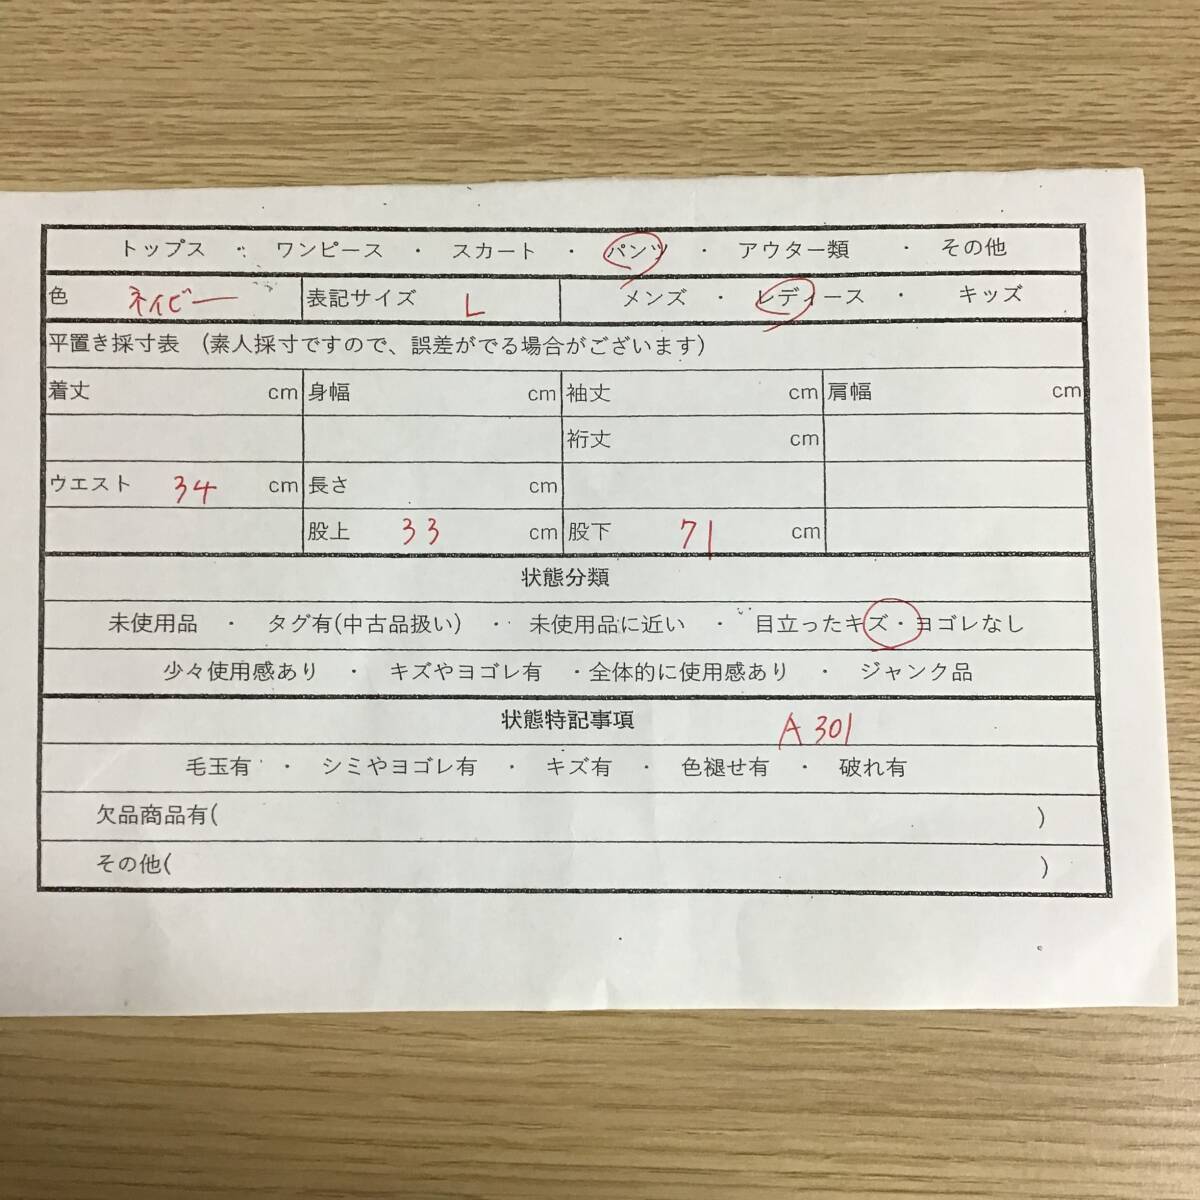 トップス ・ ワンピース ・ スカート ・ パンツ ・ アウター類 ・ その他
色 ネイビー 表記サイズ L メンズ ・ レディース ・ キッズ
平置き採寸表 (素人採寸ですので、誤差がでる場合がございます)
着丈 cm 身幅 cm 袖丈 cm 肩幅 cm
裄丈 cm
ウエスト 34 cm 長さ cm
股上 33 cm 股下 71 cm
状態分類
未使用品 ・ タグ有(中古品扱い) ・ 未使用品に近い ・ 目立ったキズ・ヨゴレなし
少々使用感あり ・ キズやヨゴレ有 ・全体的に使用感あり ・ ジャンク品
状態特記事項 A301
毛玉有 ・ シミやヨゴレ有 ・ キズ有 ・ 色褪せ有 ・ 破れ有
欠品商品有( )
その他( )